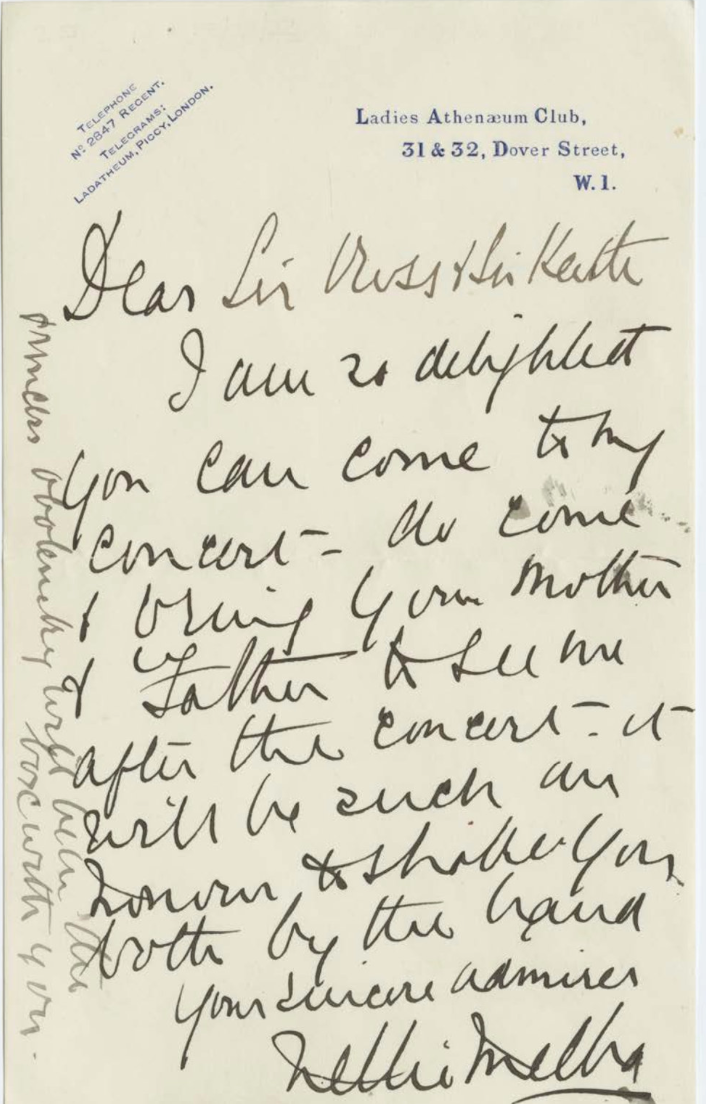 TELEPHONE
No 2847 REGENT.
TELEGRAMS:
LADATHEUM, PICCY, LONDON.
Ladies Athenæum Club,
31 & 32, Dover Street,
W. 1.
Dear Sir Ross & Sir Keith
I am so delighted
you can come to my
concert – do come
& bring your Mother
& Father to see me
after the concert – it
will be such an
honour to shake you
both by the hand
your sincere admirer
Nellie Melba
Princess Obolensky will be in the
box with you.